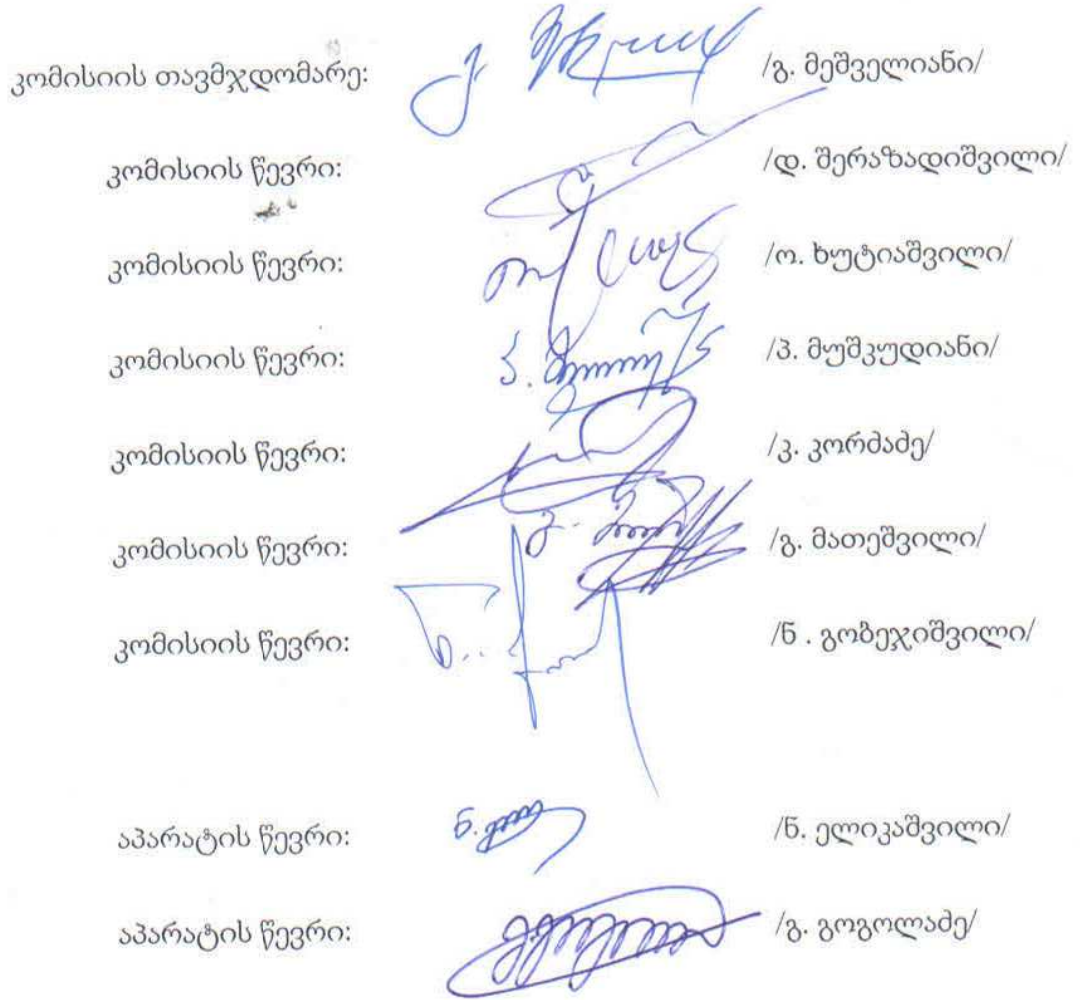 კომისიის თავმჯდომარე: /გ. მეშველიანი/
კომისიის წევრი: /დ. შერაზადიშვილი/
კომისიის წევრი: /ო. ხუტიაშვილი/
კომისიის წევრი: /პ. მუშკუდიანი/
კომისიის წევრი: /კ. კორძაძე/
კომისიის წევრი: /გ. მათეშვილი/
კომისიის წევრი: /ნ . გობეჯიშვილი/
აპარატის წევრი: /ნ. ელიკაშვილი/
აპარატის წევრი: /გ. გოგოლაძე/